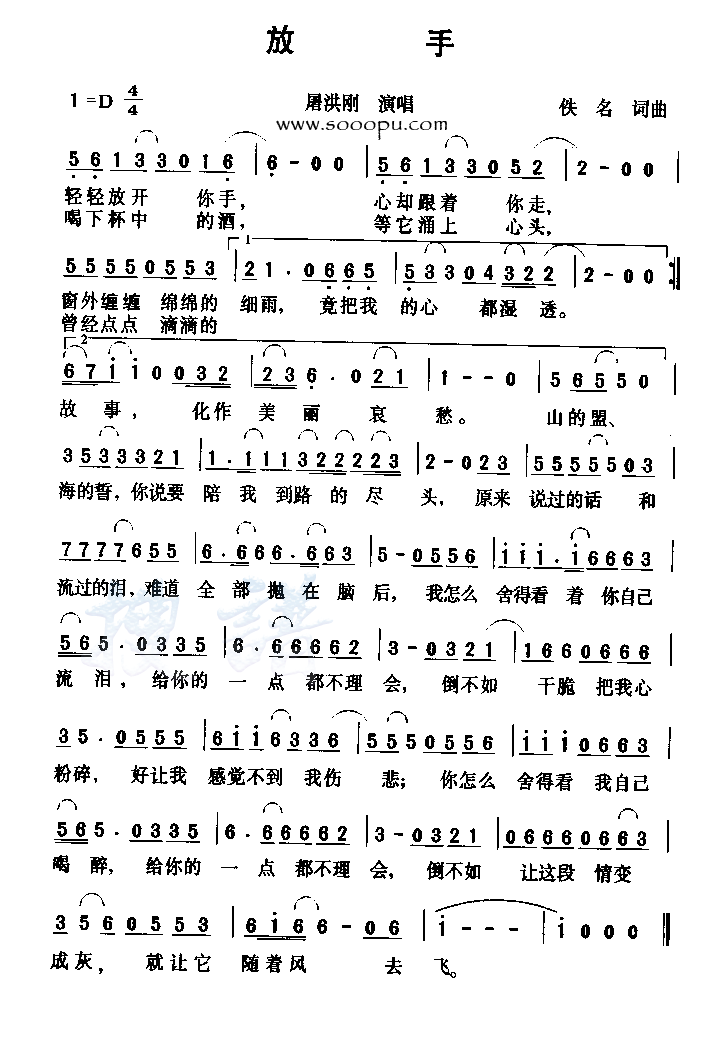 放 手
1=D 4/4 屠洪刚 演唱 佚名 词曲
www.sooopu.com
5 6 1 3 3 0 1 6 | 6 - 0 0 | 5 6 1 3 3 0 5 2 | 2 - 0 0 |
轻轻放开 你手, 心却跟着 你走,
喝下杯中 的酒, 等它涌上 心头,
5 5 5 5 0 5 5 3 | 2 1 · 0 6 6 5 | 5 3 3 0 4 3 2 2 | 2 - 0 0 :‖
窗外缠缠 绵绵的 细雨, 竟把我 的心 都湿 透。
曾经点点 滴滴的
6 7 1 1 0 0 3 2 | 2 3 6 · 0 2 1 | 1 - - 0 | 5 6 5 5 0 |
故 事, 化作 美 丽 哀 愁。 山的盟、
3 5 3 3 3 2 1 | 1 · 1 1 1 3 2 2 2 2 3 | 2 - 0 2 3 | 5 5 5 5 5 0 3 |
海的誓,你说要 陪 我 到路 的 尽 头, 原来 说过的话 和
7 7 7 7 6 5 5 | 6 · 6 6 6 · 6 6 3 | 5 - 0 5 5 6 | i i i · i 6 6 6 3 |
流过的泪,难道 全 部 抛 在 脑 后, 我怎么 舍得看 着 你自己
5 6 5 · 0 3 3 5 | 6 · 6 6 6 6 2 | 3 - 0 3 2 1 | 1 6 6 0 6 6 6 |
流 泪, 给你的 一 点 都不理 会, 倒不如 干脆 把我心
3 5 · 0 5 5 5 | 6 i i 6 3 3 6 | 5 5 5 0 5 5 6 | i i i 0 6 6 3 |
粉碎, 好让我 感觉不到 我伤 悲; 你怎么 舍得看 我自己
5 6 5 · 0 3 3 5 | 6 · 6 6 6 6 2 | 3 - 0 3 2 1 | 0 6 6 6 0 6 6 3 |
喝 醉, 给你的 一 点 都不理 会, 倒不如 让这段 情变
3 5 6 0 5 5 3 | 6 i 6 6 - 0 6 | i - - - | i 0 0 0 ‖
成灰, 就让它 随着风 去 飞。